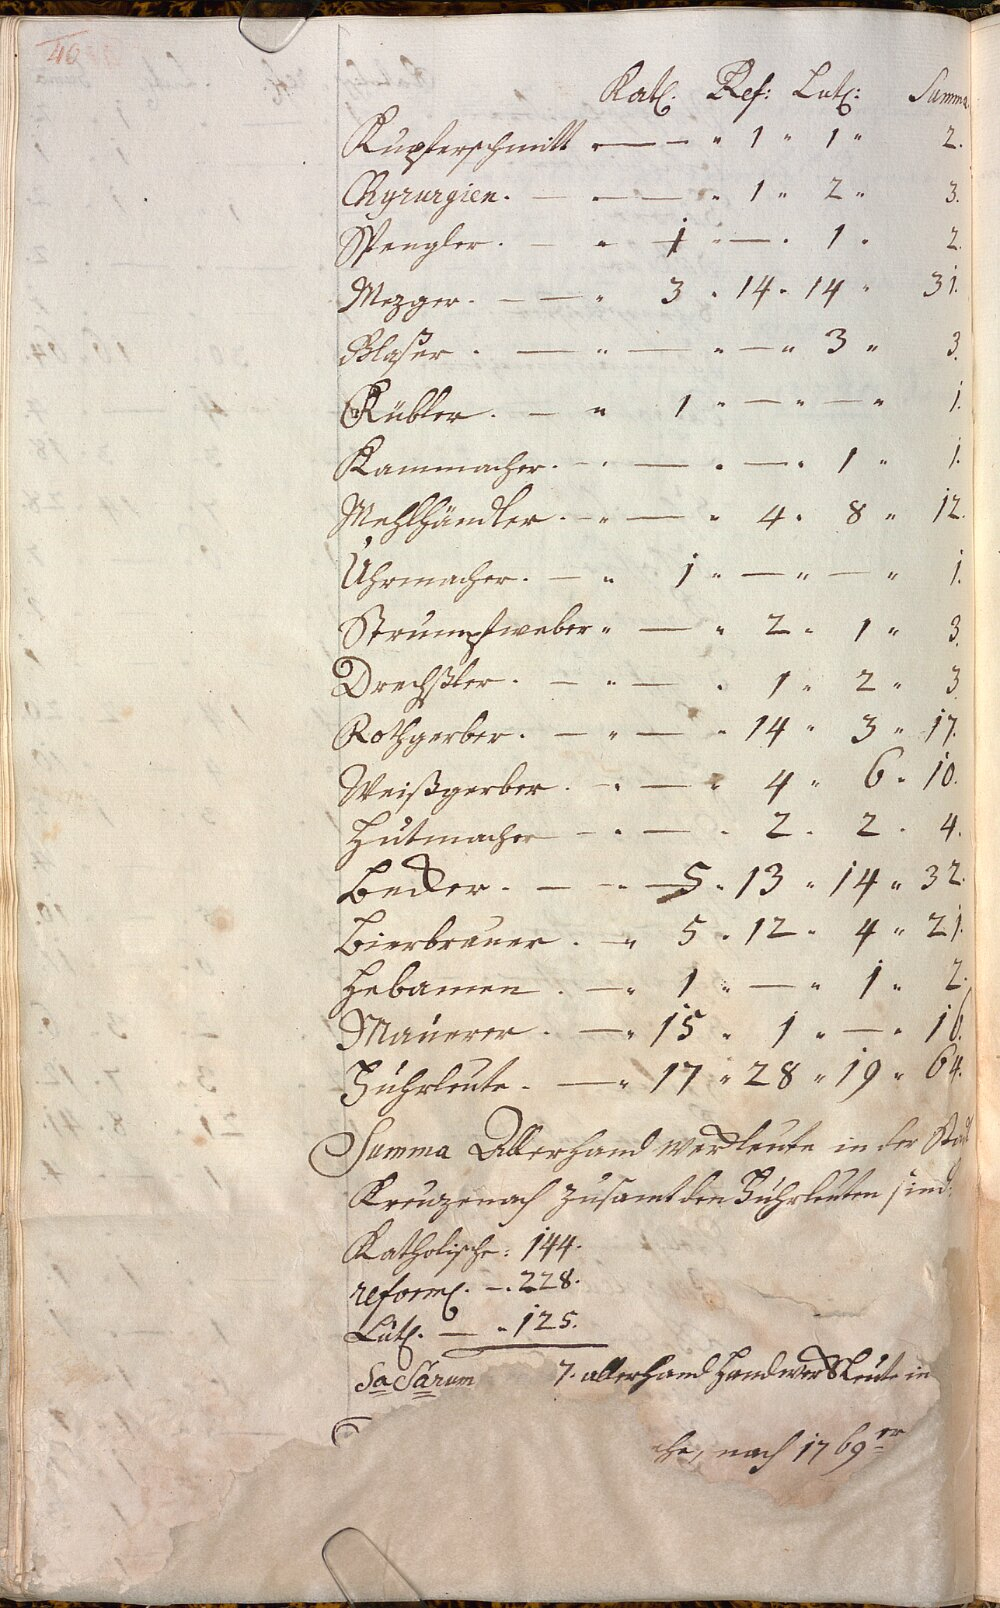 40
Kath. Ref: Luth: Summa
Kupferschmitt — — " 1 " 1 " 2.
Chyrurgien. — — — " 1 " 2 " 3.
Spengler. — " 1 " — . 1 . 2.
Mezger. — — " 3 . 14 . 14 " 31.
Glaser . — " — " — " 3 " 3.
Kübler. — " 1 " — " — " 1.
Kammacher. — . — . — . 1 " 1.
Mehlhändler. — " — " 4 . 8 " 12.
Uhrmacher. — " 1 " — " — " 1.
Strumpfweber " — " 2 . 1 " 3.
Drechßler. — " — . 1 " 2 " 3
Rothgerber. — " — " 14 " 3 " 17.
Weißgerber. — . — " 4 " 6 " 10.
Hutmacher — . — . 2 . 2 . 4.
Becker. — " 5 . 13 " 14 " 32.
Bierbrauer. — " 5 . 12 . 4 " 21.
Hebamen . — " 1 " — " 1 " 2.
Mauerer. — " 15 " 1 " — " 16.
Fuhrleute. — " 17 " 28 " 19 " 64.
Summa Allerhand werckleute in der Stadt
Kreuzenach zusamt den Fuhrleuten sind:
Katholische: 144.
reform. — . 228.
Luth. — " 125.
Sa Sarum 7. allerhand Handwercksleute in
che, nach 1769er